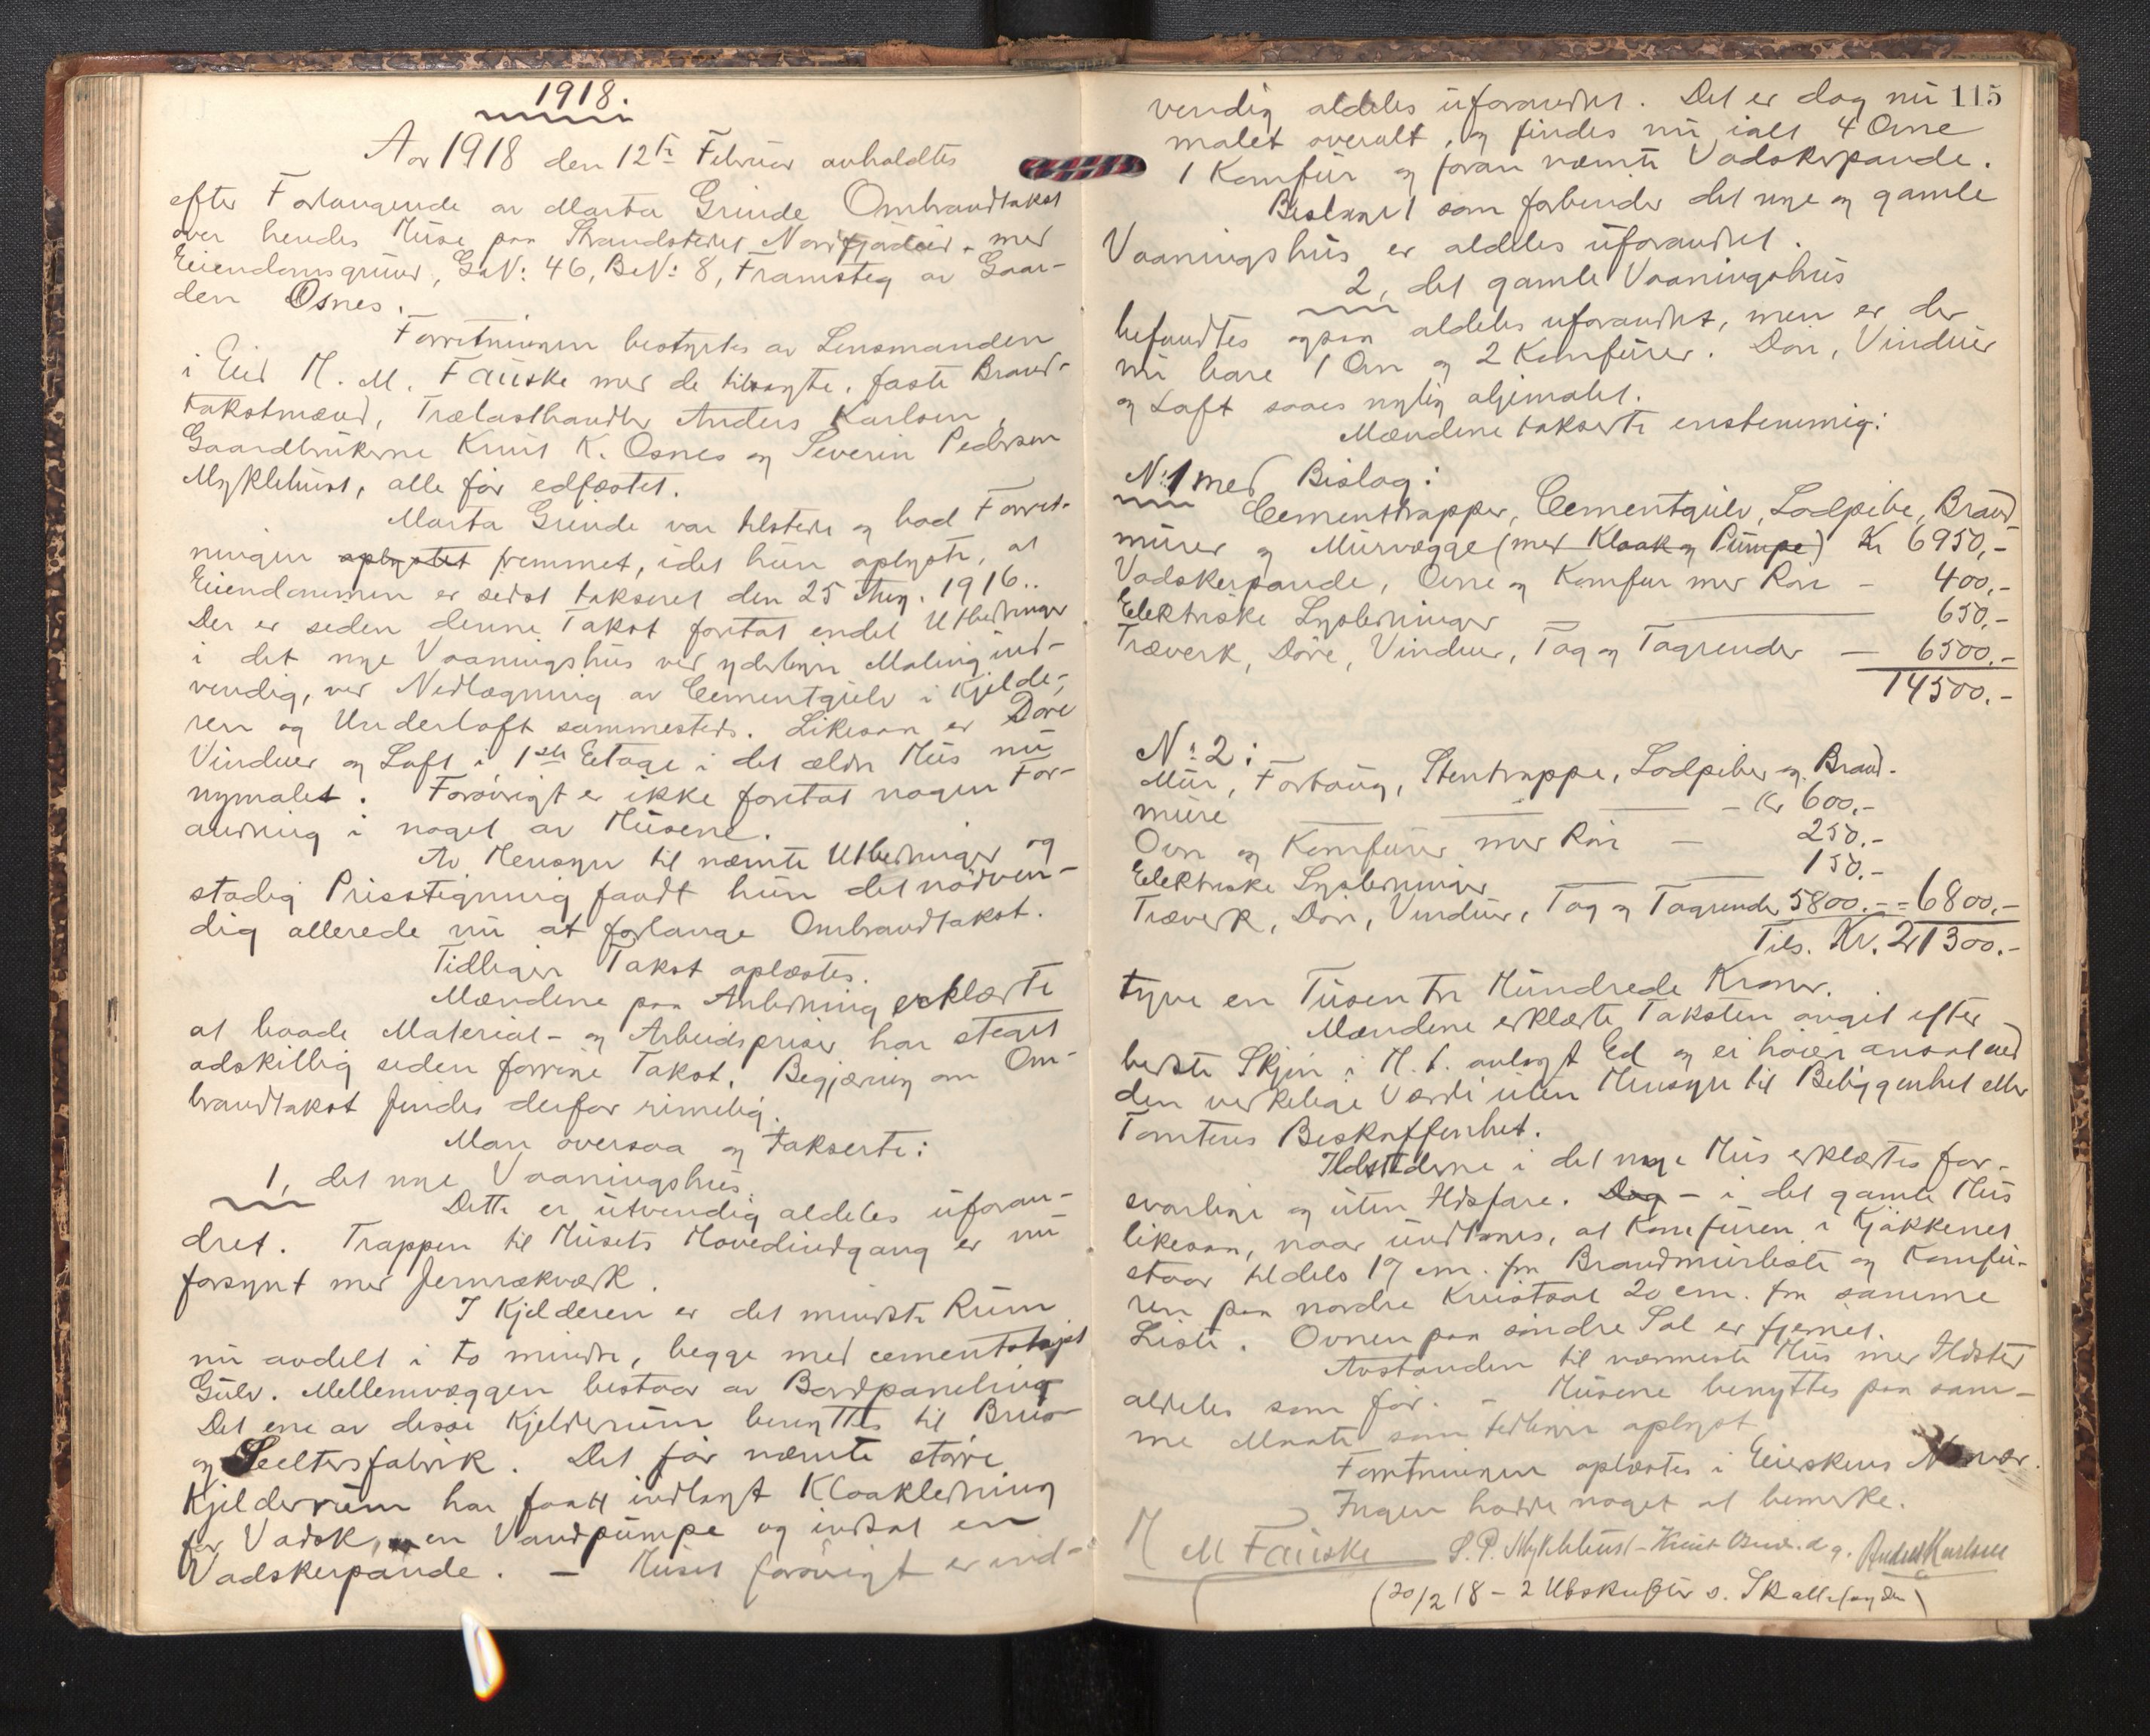 1918.
Aar 1918 den 12te Februar avholdtes
efter Forlangende av Marta Grinde Ombrandtakst
over hendes Huse paa Strandstedet Nordfjordeid med
Eiendomsgrund, G.No: 46, B.No: 8, Framsteg av Gaar-
den Osnes.
Forretningen bestyrtes av Lensmanden
i Eid H. M. Fauske med de tilsagte, faste Brand-
takstmænd, Trælasthandler Anders Karlsen,
Gaardbrukerne Knut K. Osnes og Severin Pedersen
Myklebust, alle før edfæstet.
Marta Grinde var tilstede og bad Forret-
ningen oplystet fremmet, idet hun oplyste, at
Eiendommen er sidst taksert den 25 Aug. 1916..
Der er siden denne Takst foretat endel Utbedringer
i det nye Vaaningshus ved yderligere Maling ind-
vendig, ved Nedlægning av Cementgulv i Kjelde-
ren og Underloft sammesteds. Likesaa er Døre
Vinduer og Loft i 1ste Etage i det ældre Hus nu
nymalet. Forøvrigt er ikke foretat nogen For-
andring i noget av Husene.
Av Hensyn til nævnte Utbedringer og
stadig Prisstigning fandt hun det nødven-
dig allerede nu at forlange Ombrandtakst.
Tidligere Takst oplæstes.
Mændene paa Anledning erklærte
at baade Material- og Arbeidspriser har steget
adskillig siden forrige Takst. Begjæring om Om-
brandtakst findes derfor rimelig.
Man oversaa og takserte:
1, det nye Vaaningshus.
Dette er utvendig aldeles uforan-
dret. Trappen til Husets Hovedindgang er nu
forsynt med Jernrækværk.
I Kjelderen er det mindste Rum
nu avdelt i to mindre, begge med cementstøpt
Gulv. Mellemvæggen bestaar av Bordpaneling
Det ene av disse Kjelderrum benyttes til Brus-
og Seeltersfabrik. Det før nævnte større
Kjelderrum har faatt indlagt Kloakledning
for Vadsk, en Vandpumpe og indsat en
Vadskerpande. - Huset forøvrigt er ind-
115
vendig aldeles uforandret. Det er dog nu
malet overalt, og findes nu ialt 4 Ovne
1 Komfur og foran nævnte Vadskerpande.
Bislaget som forbinder det nye og gamle
Vaaningshus er aldeles uforandret.
2, det gamle Vaaningshus
befandtes ogsaa aldeles uforandret, men er der
nu bare 1 Ovn og 2 Komfurer. Døre, Vinduer
og Loft saaes nylig oljemalet.
Mændene takserte enstemmig:
No: 1 med Bislag:
Cementtrapper, Cementgulv, Lodpibe, Brand-
murer og Murvægge (med Kloak og Pumpe) Kr 6950,-
Vadskerpande, Ovne og Komfur med Rør - 400,-
Elektriske Lysledninger - 650,-
Træverk, Døre, Vinduer, Tag og Tagrender - 6500.-
14500.-
No: 2:
Mur, Fortaug, Stentrappe, Lodpiber og Brand-
mure - Kr 600.-
Ovn og Komfurer med Rør - 250.-
Elektriske Lysledninger - 150.-
Træverk, Døre, Vinduer, Tag og Tagrender 5800.- = 6800.-
Tils. Kr. 21300.-
tyve en Tusen tre Hundrede Kroner.
Mændene erklærte Taksten avgit efter
bedste Skjøn i H. t. avlagt Ed og ei høiere ansat end
den verkelige Værdi uten Hensyn til Beliggenhet eller
Tomtens Beskaffenhet.
Ildstederne i det nye Hus erklærtes for-
svarlige og uten Ildsfare. Dog - i det gamle Hus
likesaa, naar undtages, at Komfuren i Kjøkkenet
staar tildels 19 cm. fra Brandmurliste og Komfu-
ren paa nordre Kvistsal 20 cm. fra samme
Liste. Ovnen paa søndre Sal er fjernet.
Avstanden til nærmeste Hus med Ildsted
aldeles som før. - Husene benyttes paa sam-
me Maate som tidligere oplyst
Forretningen oplæstes i Eierskens Nærvær.
Ingen hadde noget at bemerke.
H M Fauske S. P. Myklebust - Knut Osnes. d. y. Anders Karlsen
(20/2 18 - 2 Utskrifter s.